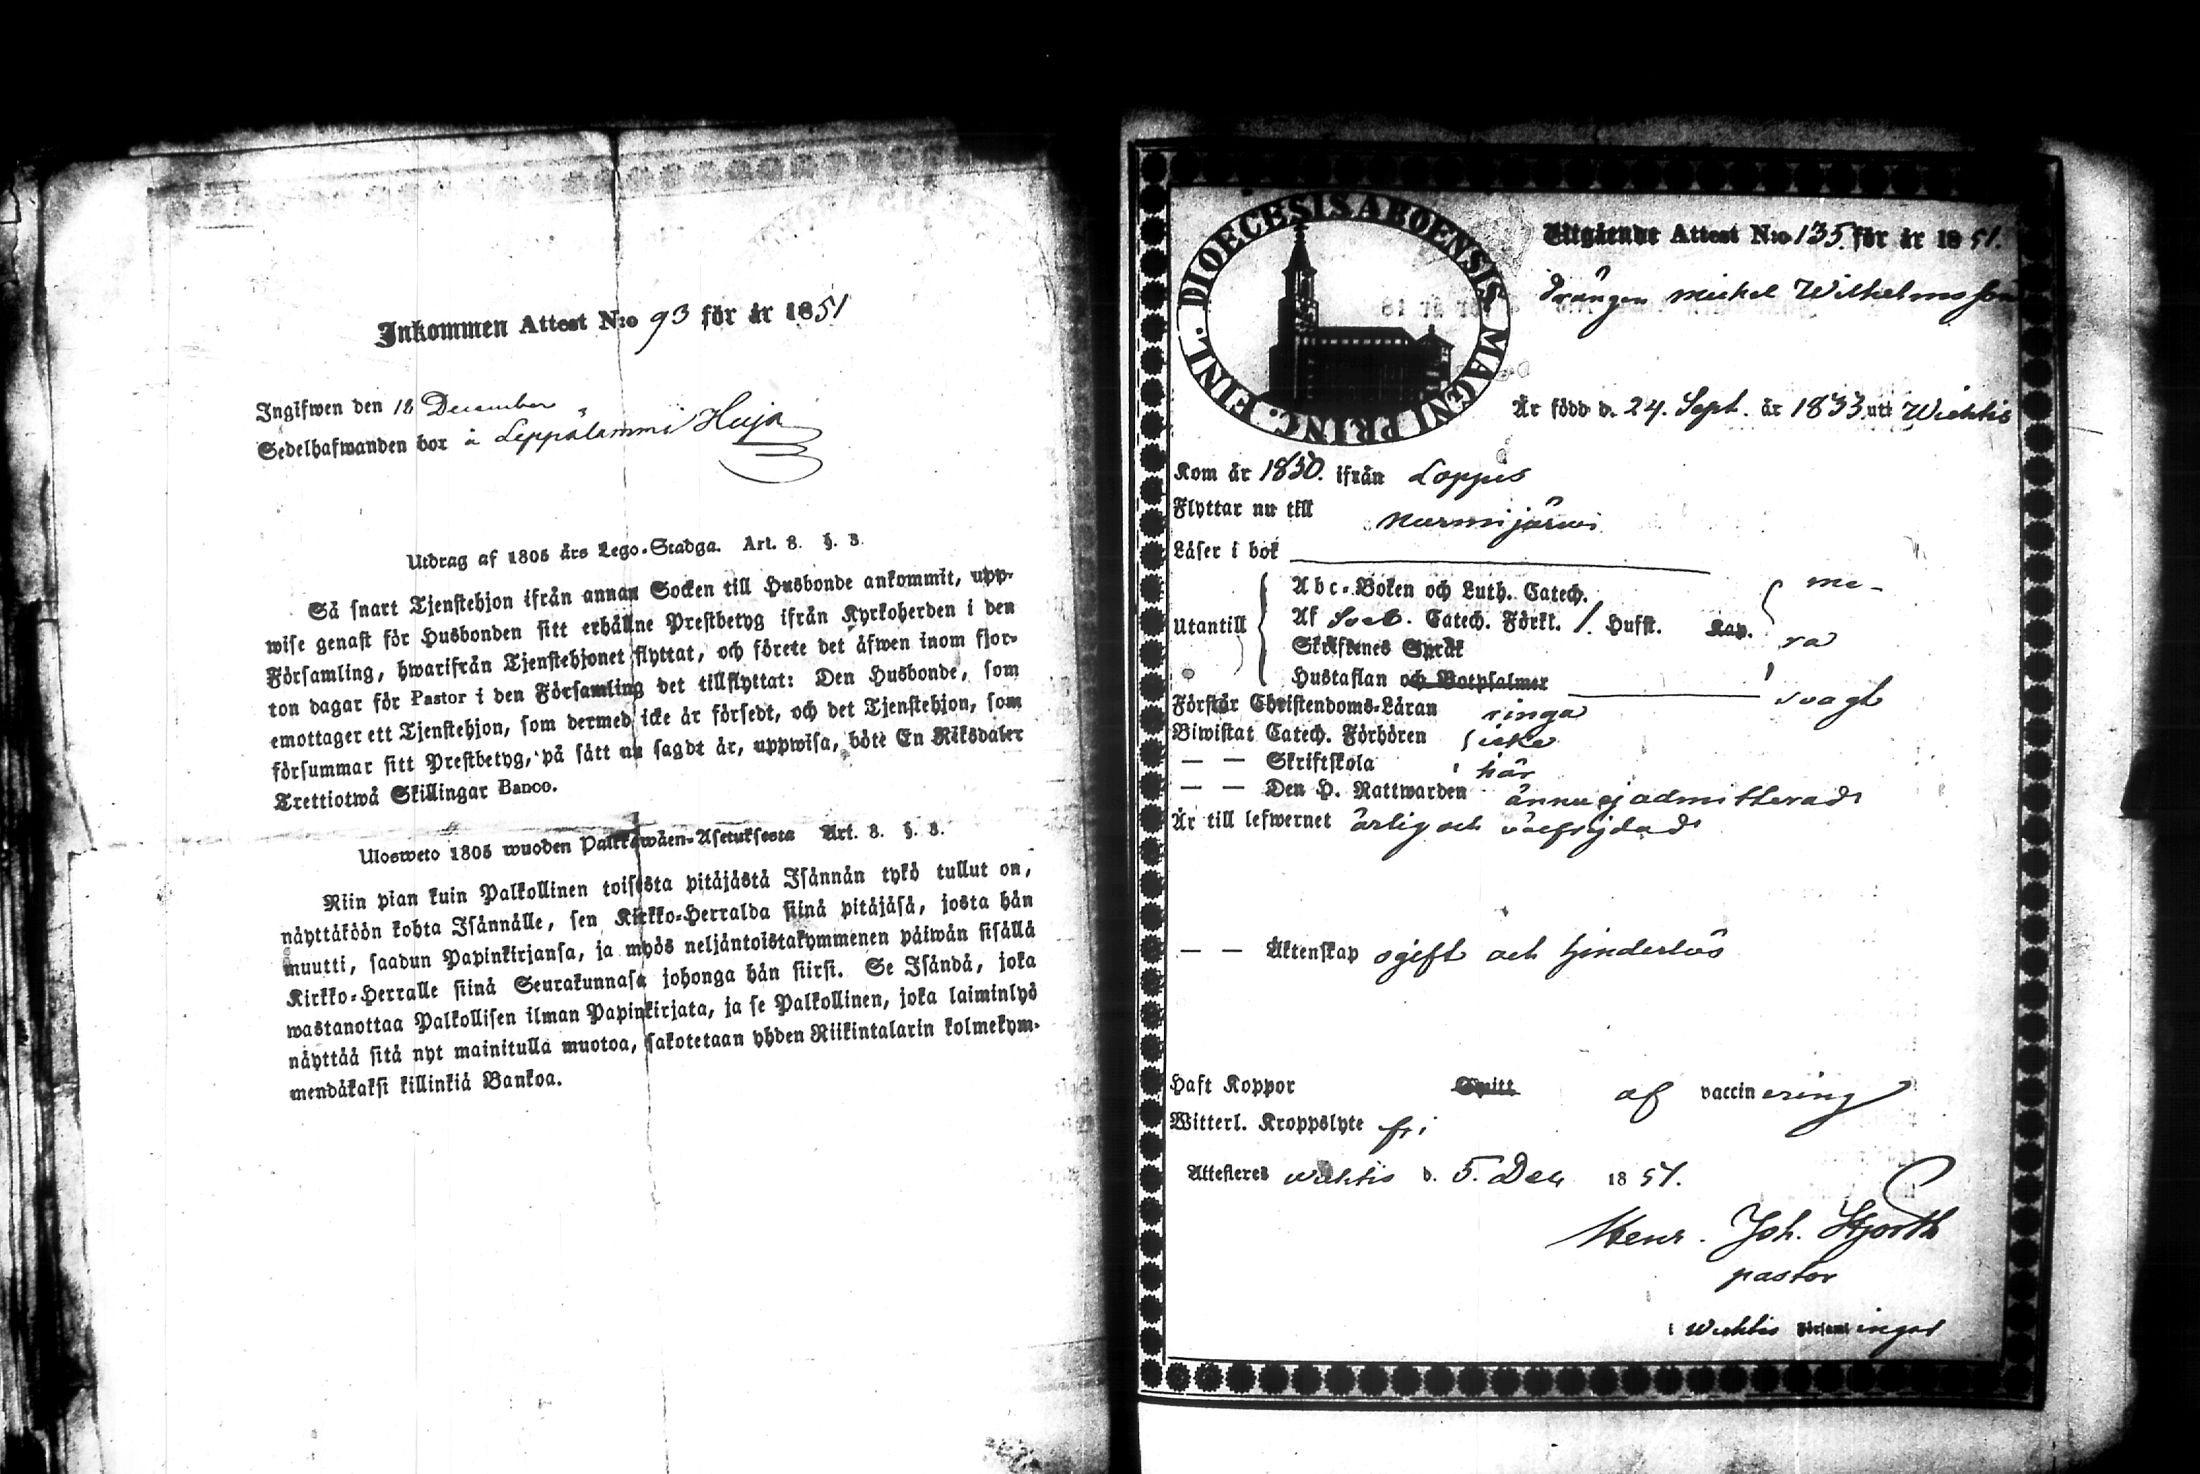 Inkommen Attest N:o 93 för år 1851
Ingifwen den 18 December
Sedelhafwanden bor å Leppälammi Huja
Utdrag af 1805 års Lego-Stadga. Art. 8. §. 3.
Så snart Tjenstehjon ifrån annan Socken till Husbonde ankommit, upp-
wise genast för Husbonden sitt erhållne Prestbetyg ifrån Kyrkoherden i den
Församling, hwarifrån Tjenstehjonet flyttat, och förete det äfwen inom fjor-
ton dagar för Pastor i den Församling det tillflyttat: Den Husbonde, som
emottager ett Tjenstehjon, som dermed icke är försedt, och det Tjenstehjon, som
försummar sitt Prestbetyg, på sätt nu sagdt är, uppwisa, böte En Riksdaler
Trettiotwå Skillingar Banco.
Ulosweto 1805 wuoden Palkkawäen-Asetuksesta Art. 8. §. 3.
Niin pian kuin Palkollinen toisesta pitäjästä Isännän tykö tullut on,
näyttäköön kohta Isännälle, sen Kirkko-Herralda siinä pitäjäsä, josta hän
muutti, saadun Papinkirjansa, ja myös neljäntoistakymmenen päiwän sisällä
Kirkko-Herralle siinä Seurakunnasa johonga hän siirsi. Se Isändä, joka
wastanottaa Palkollisen ilman Papinkirjata, ja se Palkollinen, joka laiminlyö
näyttää sitä nyt mainitulla muotoa, sakotetaan yhden Riikintalarin kolmekym-
mendäkaksi killinkiä Bankoa.
DIOECESIS ABOENSIS MAGNI PRINC. FINL.
Utgående Attest N:o 135 för år 1851.
Drängen Michel Wilhelmsson
Är född d. 24. Sept. år 1833 utt Wichtis
Kom år 1850. ifrån Loppis
Flyttar nu till Nurmijärwi
Läser i bok
Utantill
Abc-Boken och Luth. Catech.
Af Sveb. Catech. Förkl. 1. Hufst. Kap.
Skriftenes Språk
Hustaflan och Botpsalmer
me-
ra
svagt
Förstår Christendoms-Läran ringa
Biwistat Catech. Förhören icke
— — Skriftskola här
— — Den H. Nattwarden ännu ej admitterad
Är till lefwernet ärlig och välfrejdad
— — Äktenskap ogift och hinderlös
Haft Koppor Smitt af vaccinering
Witterl. Kroppslyte fri
Attesteres Wichtis d. 5. Dec 1851.
Henr. Joh. Hjorth
pastor
i Wichtis Församlingar